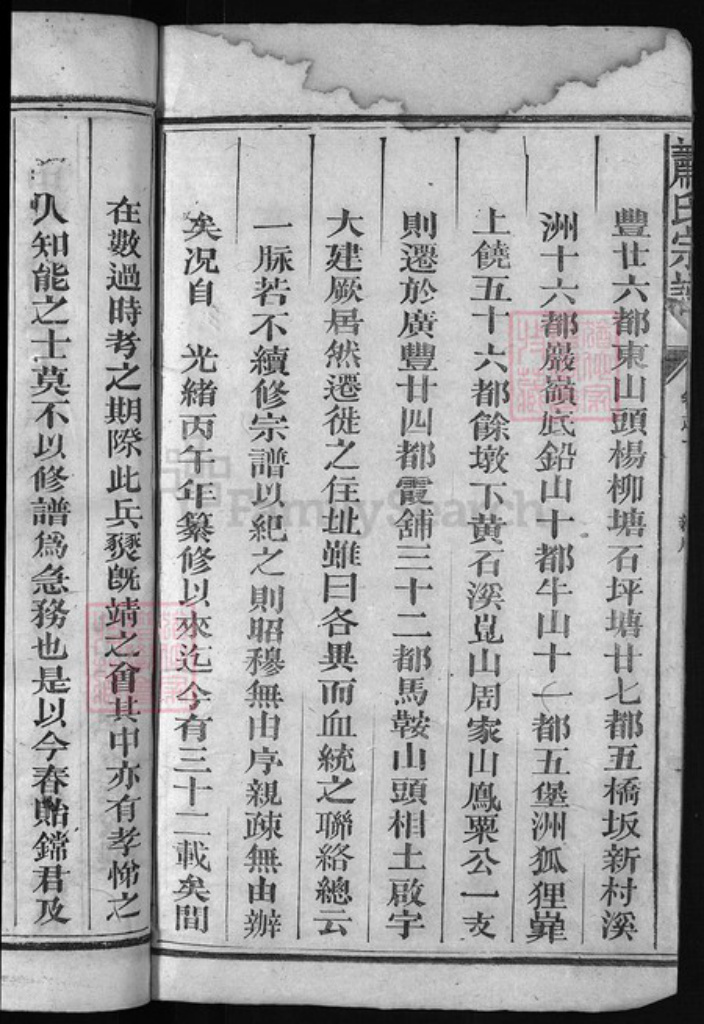 蕭氏宗譜
豐廿六都東山頭楊柳塘石坪塘廿七都五橋坂新村溪
洲十六都嚴嶺底鉛山十都牛山十一都五堡洲狐狸嶭
上饒五十六都餘墩下黃石溪崑山周家山鳳粟公一支
則遷於廣豐廿四都霞舖三十二都馬鞍山頭相土啟宇
大建厥居然遷徙之住址雖曰各異而血統之聯絡總云
一脉若不續修宗譜以紀之則昭穆無由序親疎無由辦
矣况自 光緒丙午年纂修以來迄今有三十二載矣間
在數過時考之期際此兵燹既靖之會其中亦有孝悌之
人知能之士莫不以修譜爲急務也是以今春貽鐺君及
FamilySearch